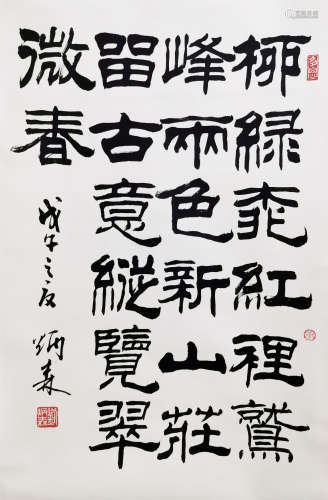 柳綠桃紅裡鷲
峰兩色新山莊
留古意縱覽翠
微春
戊午之夏 炳森